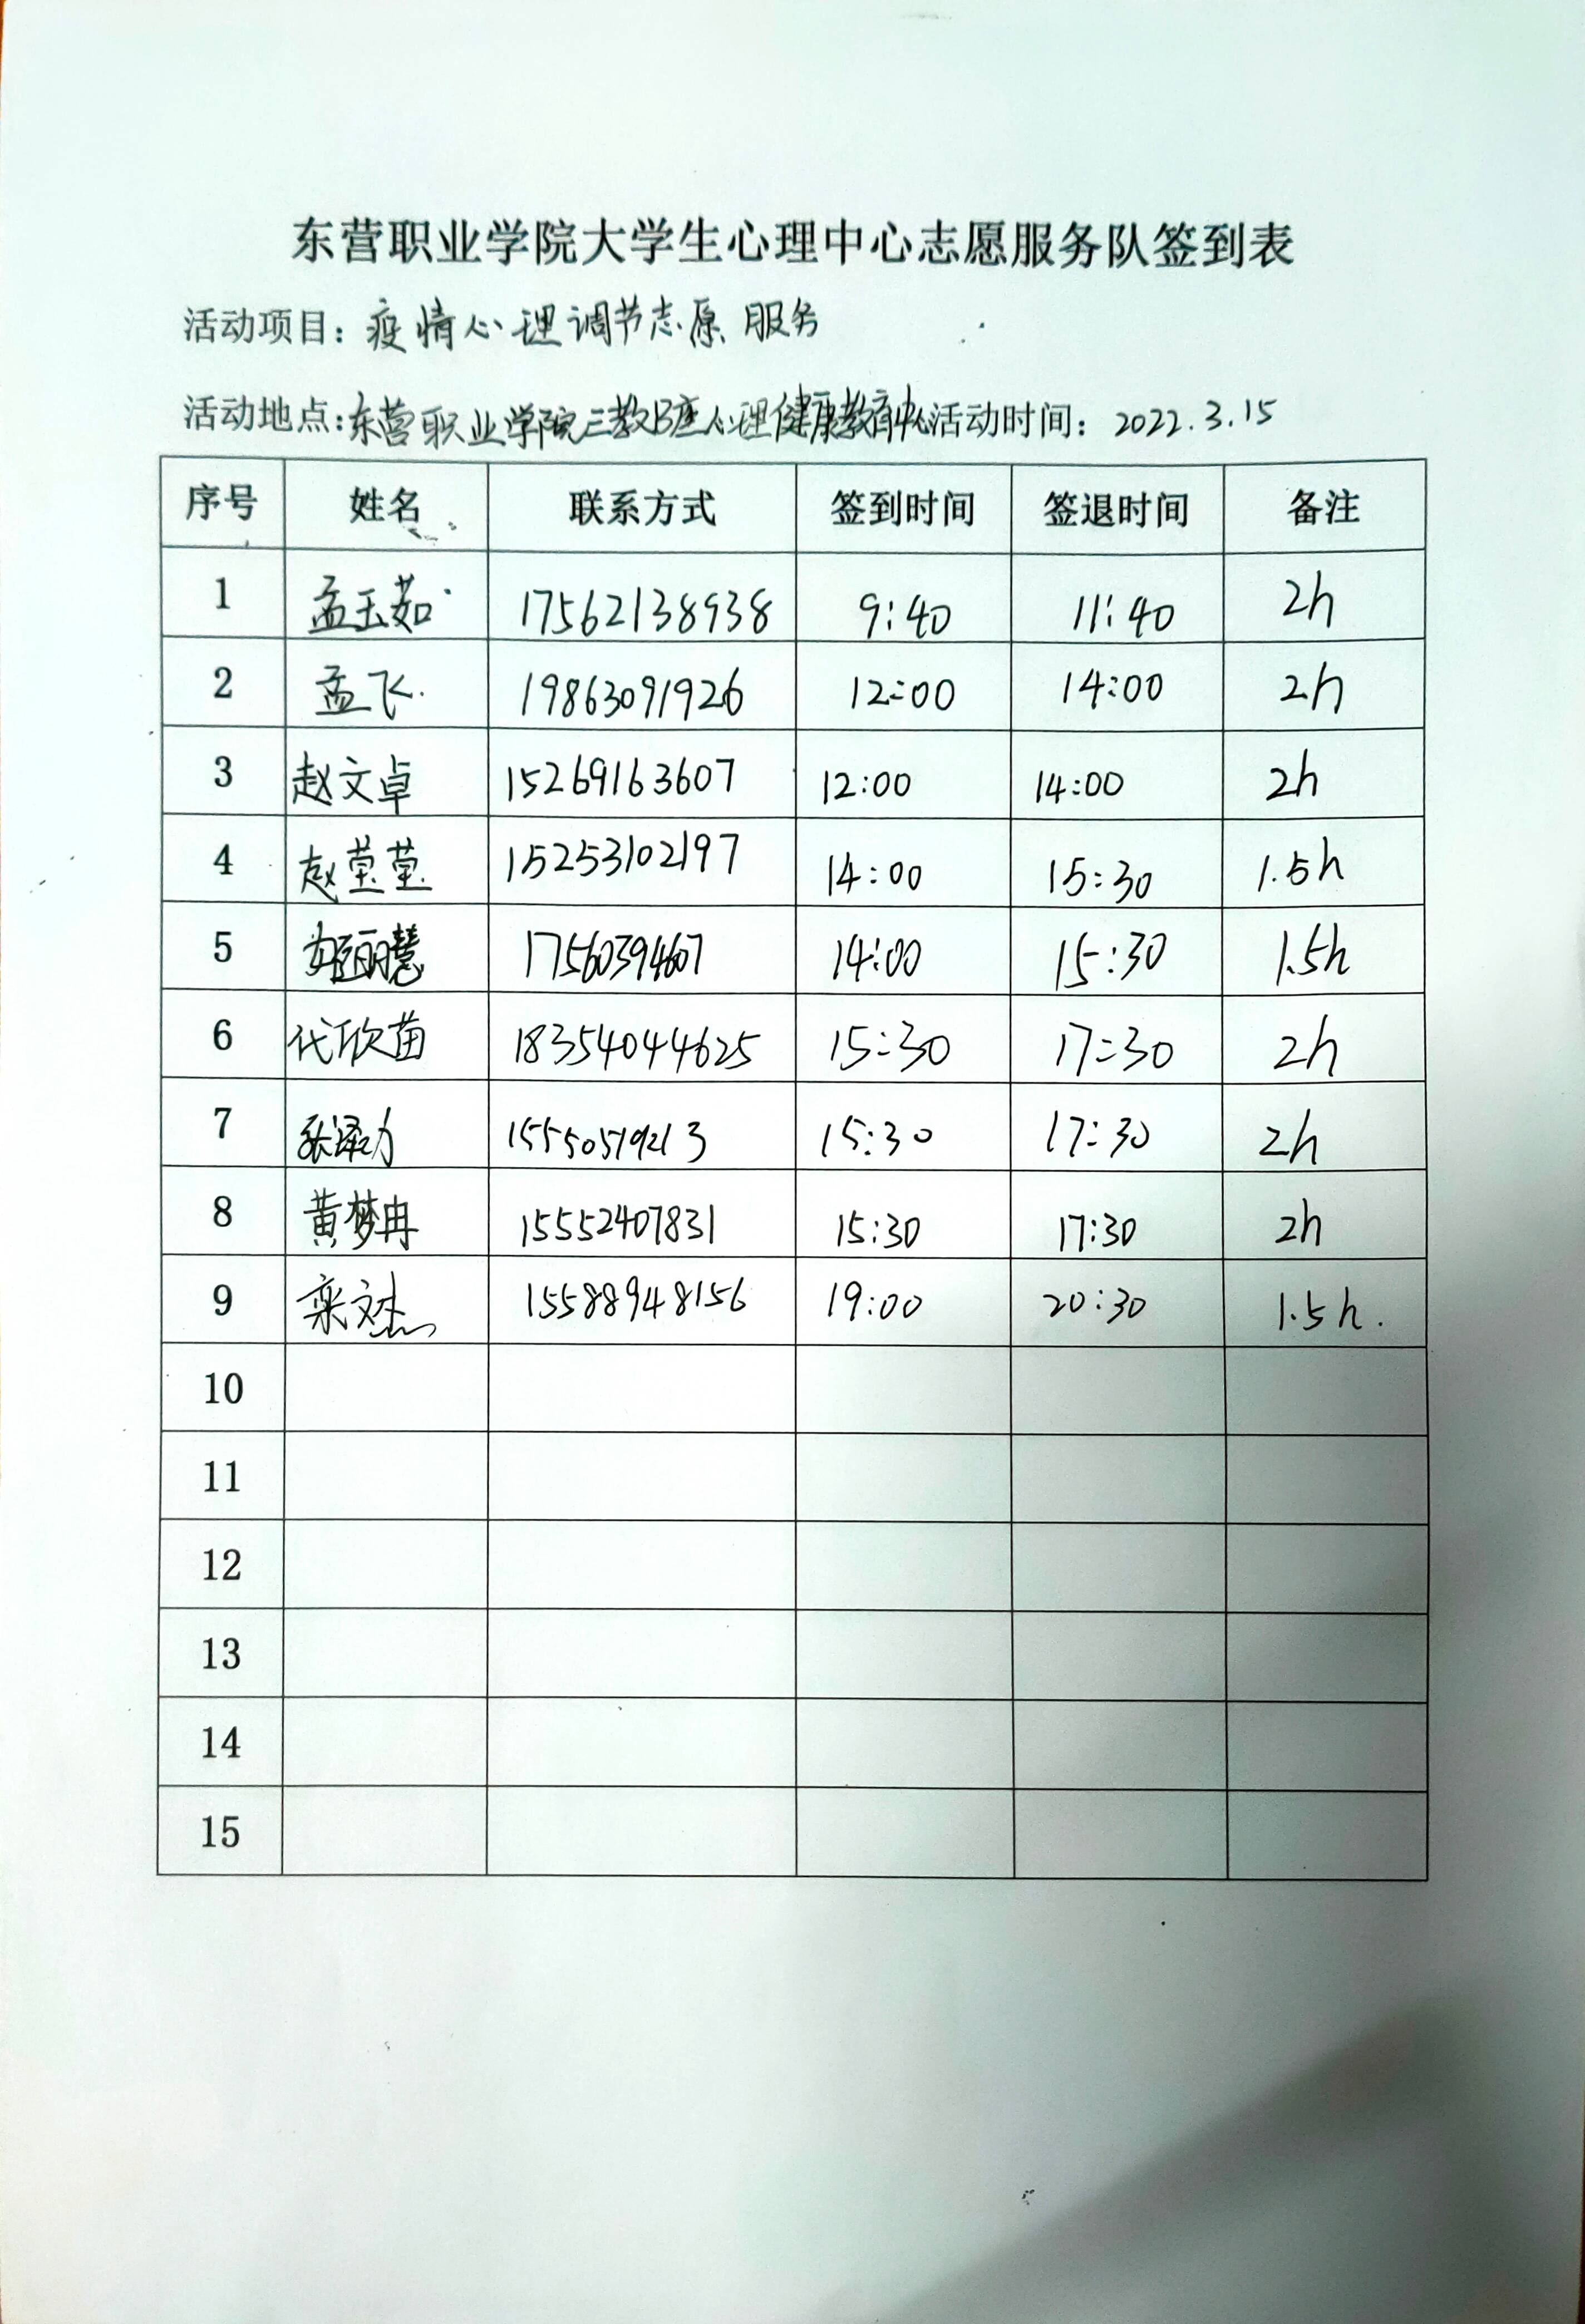 东营职业学院大学生心理中心志愿服务队签到表
活动项目：疫情心理调节志愿服务
活动地点：东营职业学院三教B座心理健康教育中心 活动时间：2022.3.15
序号 姓名 联系方式 签到时间 签退时间 备注
1 孟玉茹 17562138938 9:40 11:40 2h
2 孟飞 19863091926 12:00 14:00 2h
3 赵文卓 15269163607 12:00 14:00 2h
4 赵莹莹 15253102197 14:00 15:30 1.5h
5 17560394607 14:00 15:30 1.5h
6 代欣苗 18354044625 15:30 17:30 2h
7 15550519213 15:30 17:30 2h
8 黄梦冉 15552407831 15:30 17:30 2h
9 栾文杰 15588948156 19:00 20:30 1.5h.
10
11
12
13
14
15